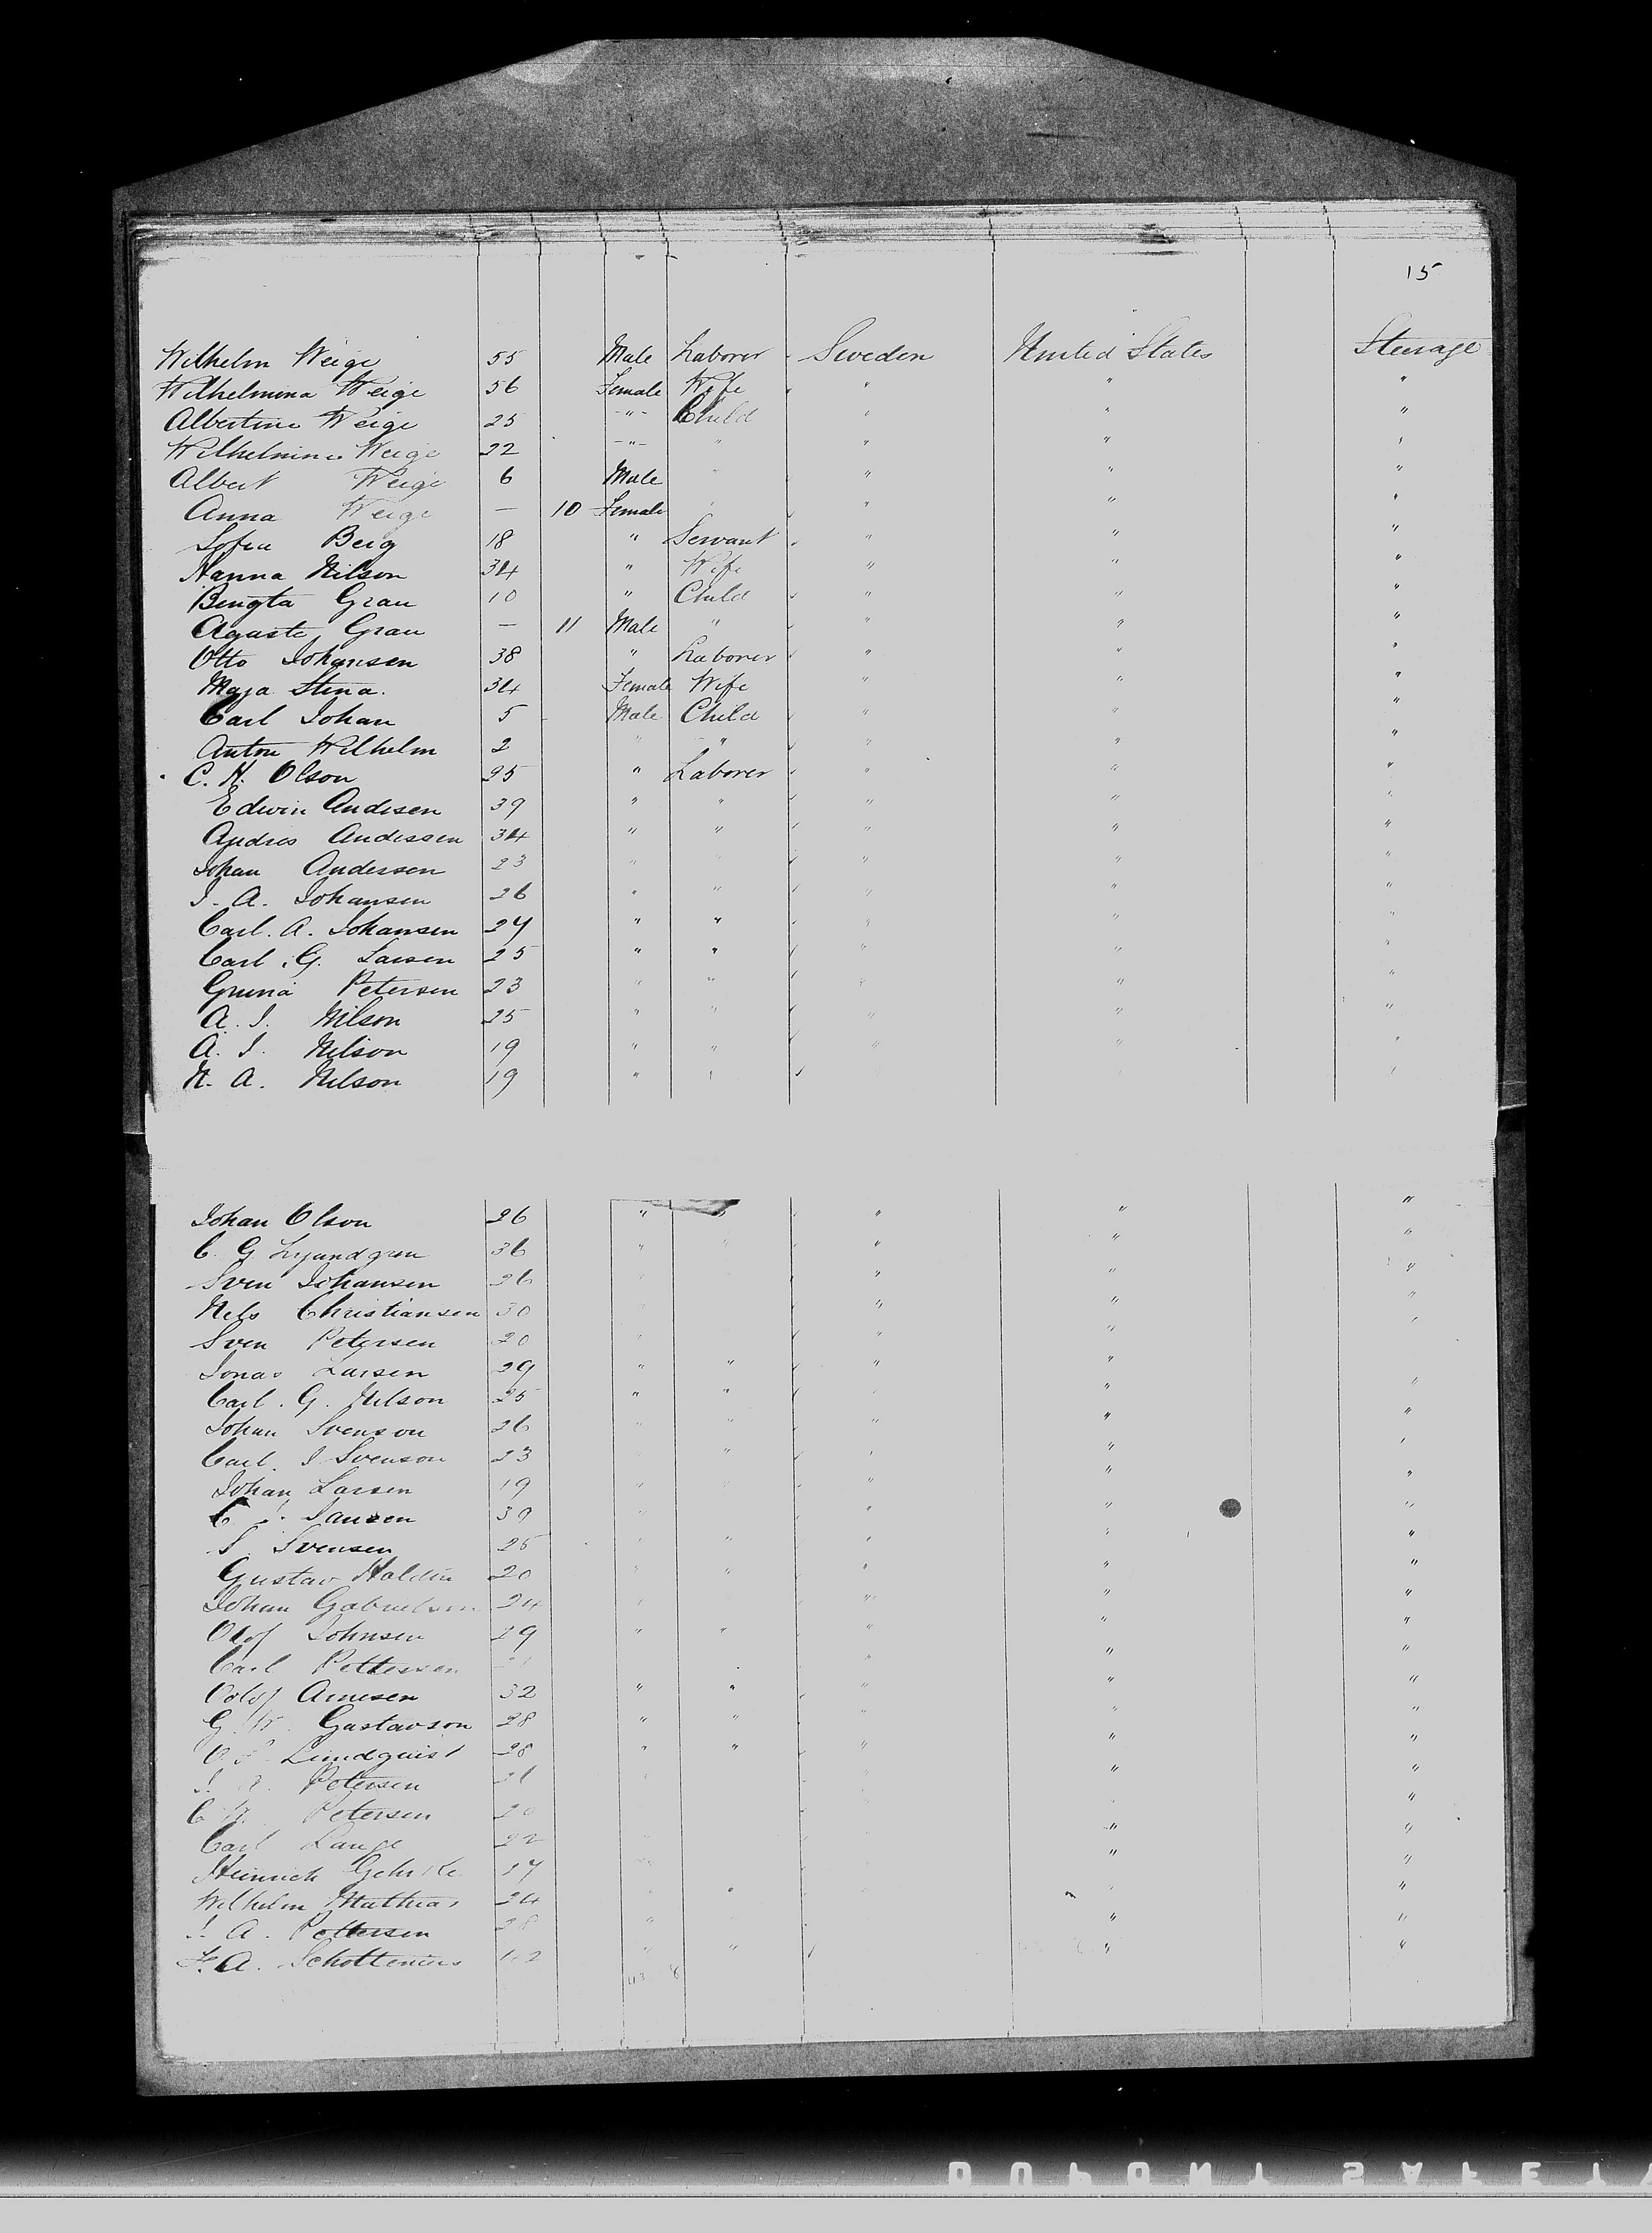 15
Wilhelm Weige 55 Male Laborer Sweden United States Steerage
Wilhelmina Weige 56 Female Wife " " "
Albertine Weige 25 -"- Child " " "
Wilhelmine Weige 22 -"- " " " "
Albert Weige 6 Male " " " "
Anna Weige — 10 Female " " " "
Sofia Berg 18 " Servant " " "
Hanna Nilson 34 " Wife " " "
Bengta Grau 10 " Child " " "
Agaste Grau — 11 Male " " " "
Otto Johansen 38 " Laborer " " "
Maja Stina. 34 Female Wife " " "
Carl Johan 5 Male Child " " "
Anton Wilhelm 2 " " " " "
C. H. Olson 25 " Laborer " " "
Edwin Andisen 39 " " " " "
Andres Andessen 34 " " " " "
Johan Andersen 23 " " " " "
J. A. Johansen 26 " " " " "
Carl. A. Johansen 24 " " " " "
Carl. G. Larsen 25 " " " " "
Petersen 23 " " " " "
A. J. Nilson 25 " " " " "
A. J. Nilson 19 " " " " "
N. A. Nilson 19 " " "
Johan Olson 26 " " " " "
C. G. 36 " " " " "
Sven Johansen 26 " " " "
Nels Christiansen 30 " " " "
Sven Petersen 20 " " " "
Jonas Larsen 29 " " " "
Carl. G. Nilson 25 " " " " "
Johan Svenson 26 " " " " "
Carl. J Svenson 23 " " " " "
Johan Larsen 19 " " " "
C. J. Jansen 39 " " " "
S. Svensen 25 " " " " "
Gustav Haldin 20 " " " " "
Johan Gabrielson 24 " " " "
Olof Johnsen 29 " " " " "
Carl Pettersen " " "
Oolof Arnesen 32 " " " " "
G. W. Gustavson 28 " " " " "
Lundquist 28 " " " " "
J. A. Petersen 21 " " "
C. Petersen 20 " "
Carl Lange 22 " "
Heinrich Gehrke 27 " "
Wilhelm Mathias 24 " " " "
J. A. Pettersen 28 " " "
F. A. Schottenius " " " "